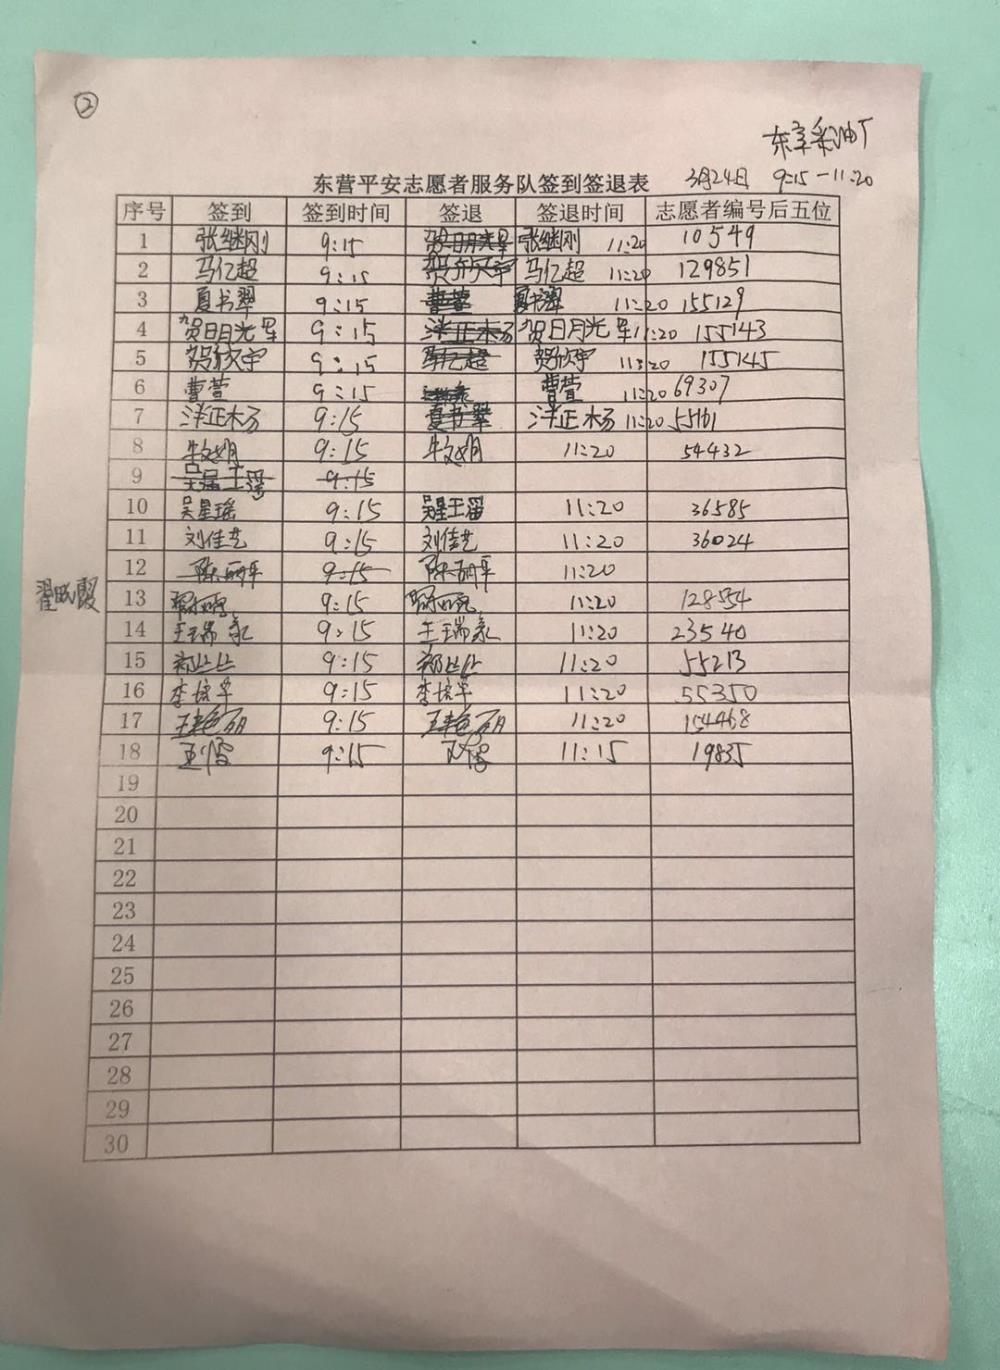 ②
东辛采油厂
东营平安志愿者服务队签到签退表 3月24日 9:15-11:20
序号 签到 签到时间 签退 签退时间 志愿者编号后五位
1 张继刚 9:15 贺日月光星 张继刚 11:20 10549
2 马亿超 9:15 贺欣宇 马亿超 11:20 129851
3 夏书翠 9:15 曹萱 夏书翠 11:20 155129
4 贺日月光星 9:15 贺日月光星 11:20 155143
5 贺欣宇 9:15 马亿超 贺欣宇 11:20 155145
6 曹萱 9:15 曹萱 11:20 69307
7 9:15 夏书翠 11:20
8 牛文娟 9:15 牛文娟 11:20 54432
9 9:15
10 吴星瑶 9:15 吴星瑶 11:20 36585
11 刘佳艺 9:15 刘佳艺 11:20 36024
12 陈丽平 9:15 陈丽平 11:20
翟晓霞 13 9:15 11:20 128554
14 王瑞永 9:15 王瑞永 11:20 23540
15 郑丛丛 9:15 郑丛丛 11:20 55213
16 李培军 9:15 李培军 11:20 55350
17 王艳丽 9:15 王艳丽 11:20 154468
18 9:15 11:15 19835
19
20
21
22
23
24
25
26
27
28
29
30